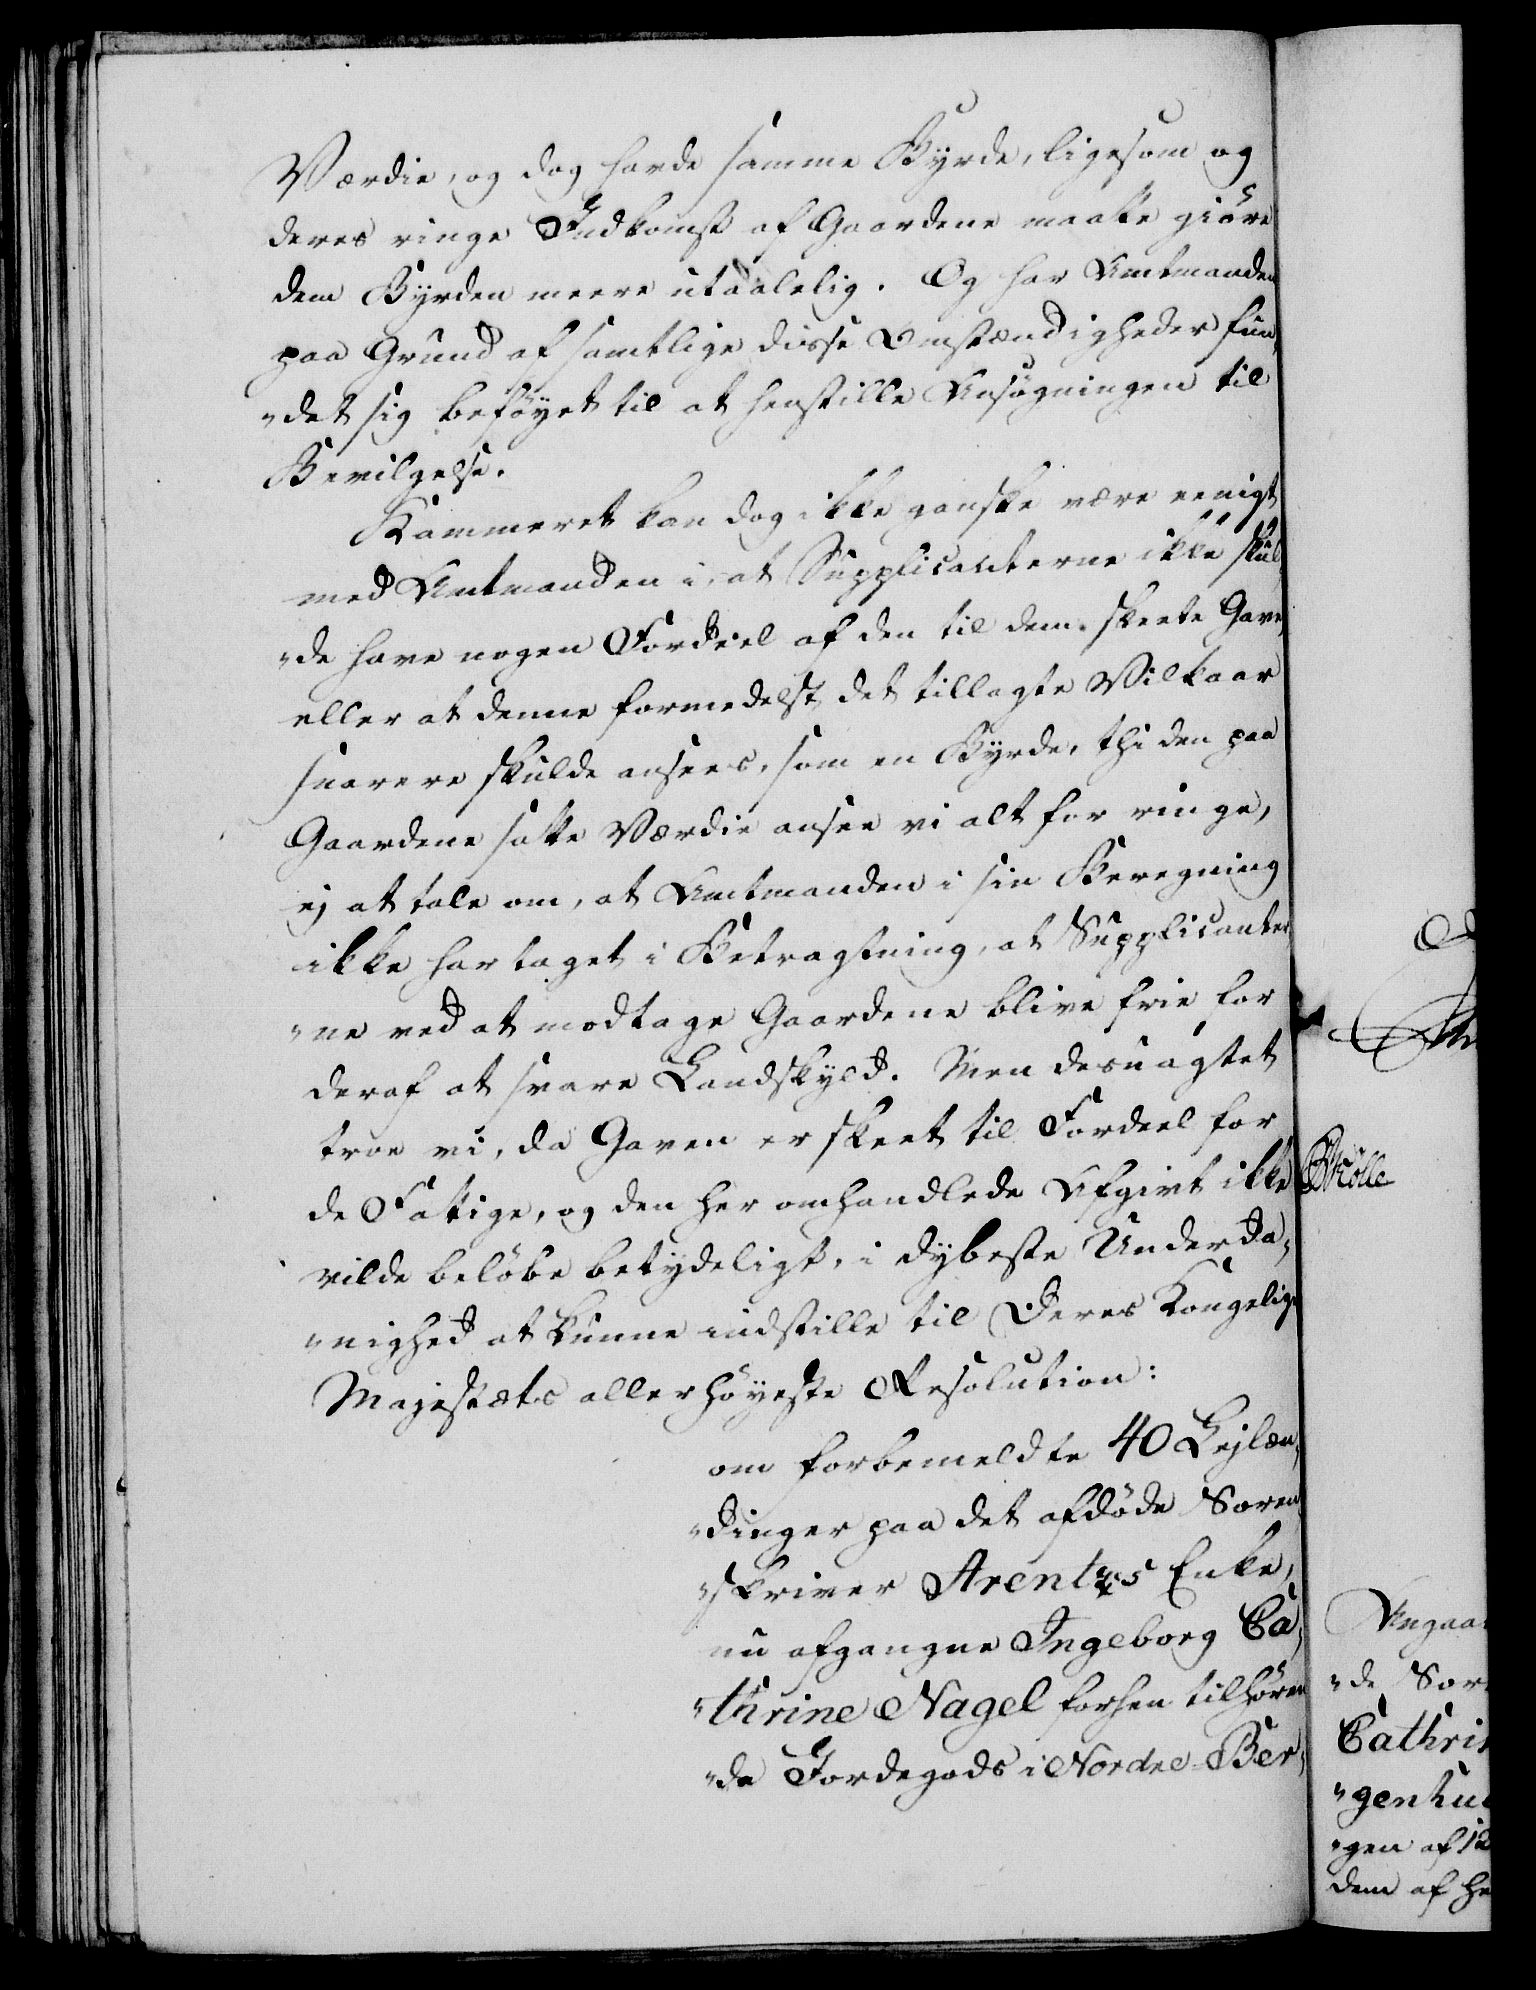 Værdie, og dog havde samme Byrde, ligesom og
deres ringe Indkomst af Gaardene maatte giöre
dem Byrden meere utaalelig. Og har Amtmanden
paa Grund af samtlige disse Omstændigheder fun„
„det sig beföyet til at henstille Ansögningen til
Bevilgelse.
Kammeret kan dog ikke ganske være eenigt
med Amtmanden i, at Supplicanterne ikke skul„
„de have nogen Fordeel af den til dem skeete Gave,
eller at denne formedelst det tillagte Vilkaar
snarere skulde ansees, som en Byrde, thi den paa
Gaardene satte Værdie ansee vi alt for ringe,
ej at tale om, at Amtmanden i sin Beregning
ikke har taget i Betragtning, at Supplicanter„
„ne ved at modtage Gaardene blive frie for
deraf at svare Landskyld. Men desuagtet
troe vi, da Gaven er skeet til Fordeel for
de Fattige, og den her omhandlede Afgivt ikke
vilde belöbe betydeligt, i dybeste Underda„
„nighed at kunne indstille til Deres Kongelige
Majestæts allerhöyeste Resolution:
om forbemeldte 40 Lejlæn„
„dinger paa det afdöde Soren„
„skriver Arentzes Enke,
nu afgangne Ingeborg Ca„
„thrine Nagel forhen tilhören„
„de Jordegods i Nordre Ber„
Mölle
Angaa
„de Sor
Cathri
„genhu
„gen af 12
dem af he